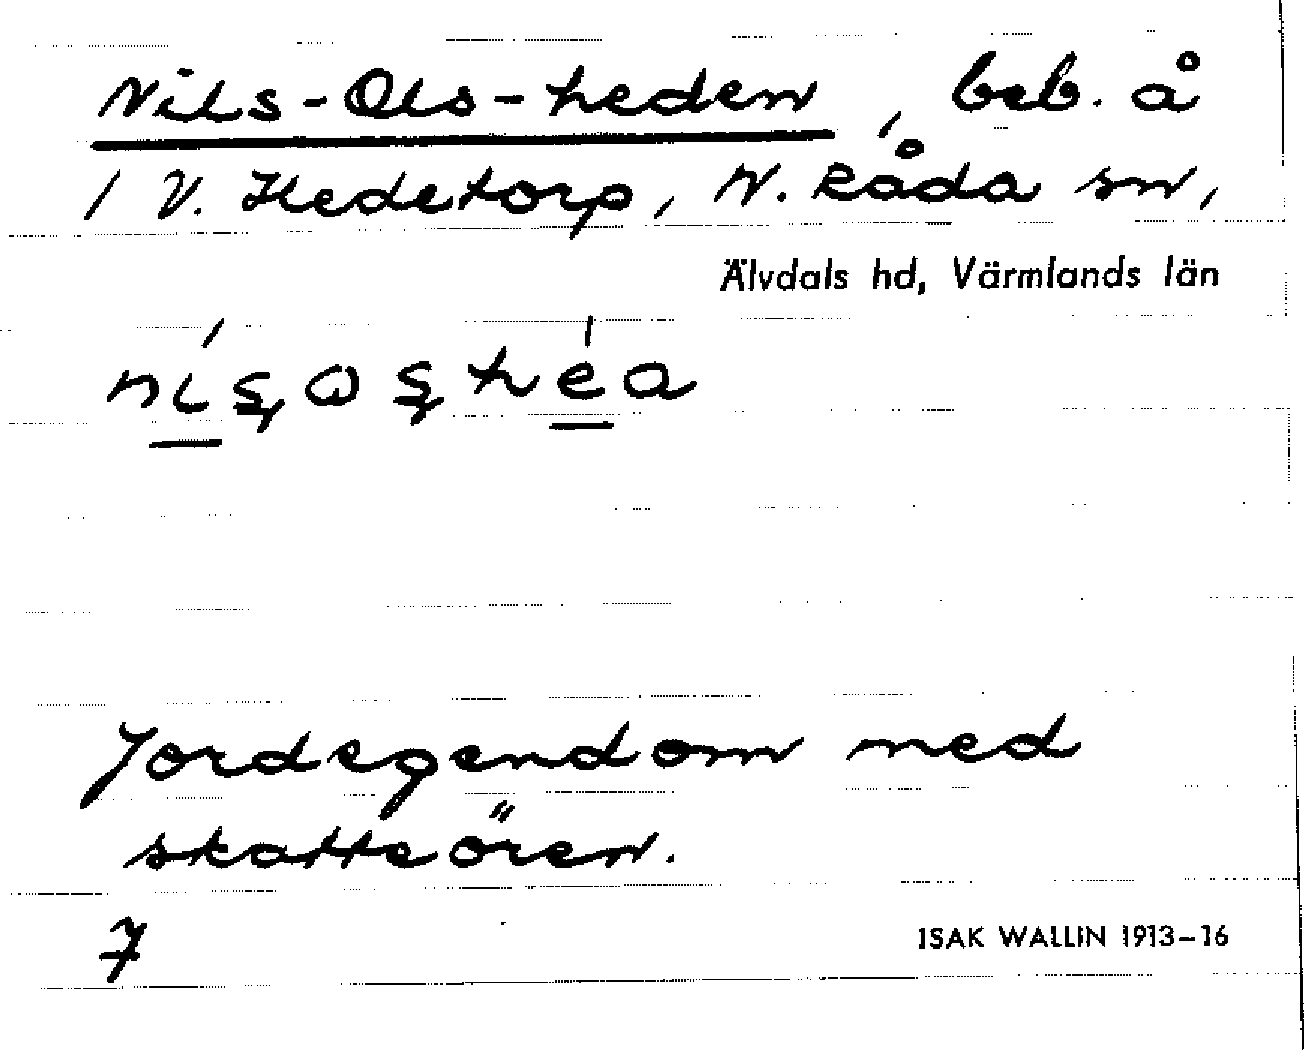 Nils-Ols-heden, beb. å
/ V. Hedetorp, N. Råda sn,
Älvdals hd, Värmlands län
Jordegendom med
skatteören.
7
ISAK WALLIN 1913–16